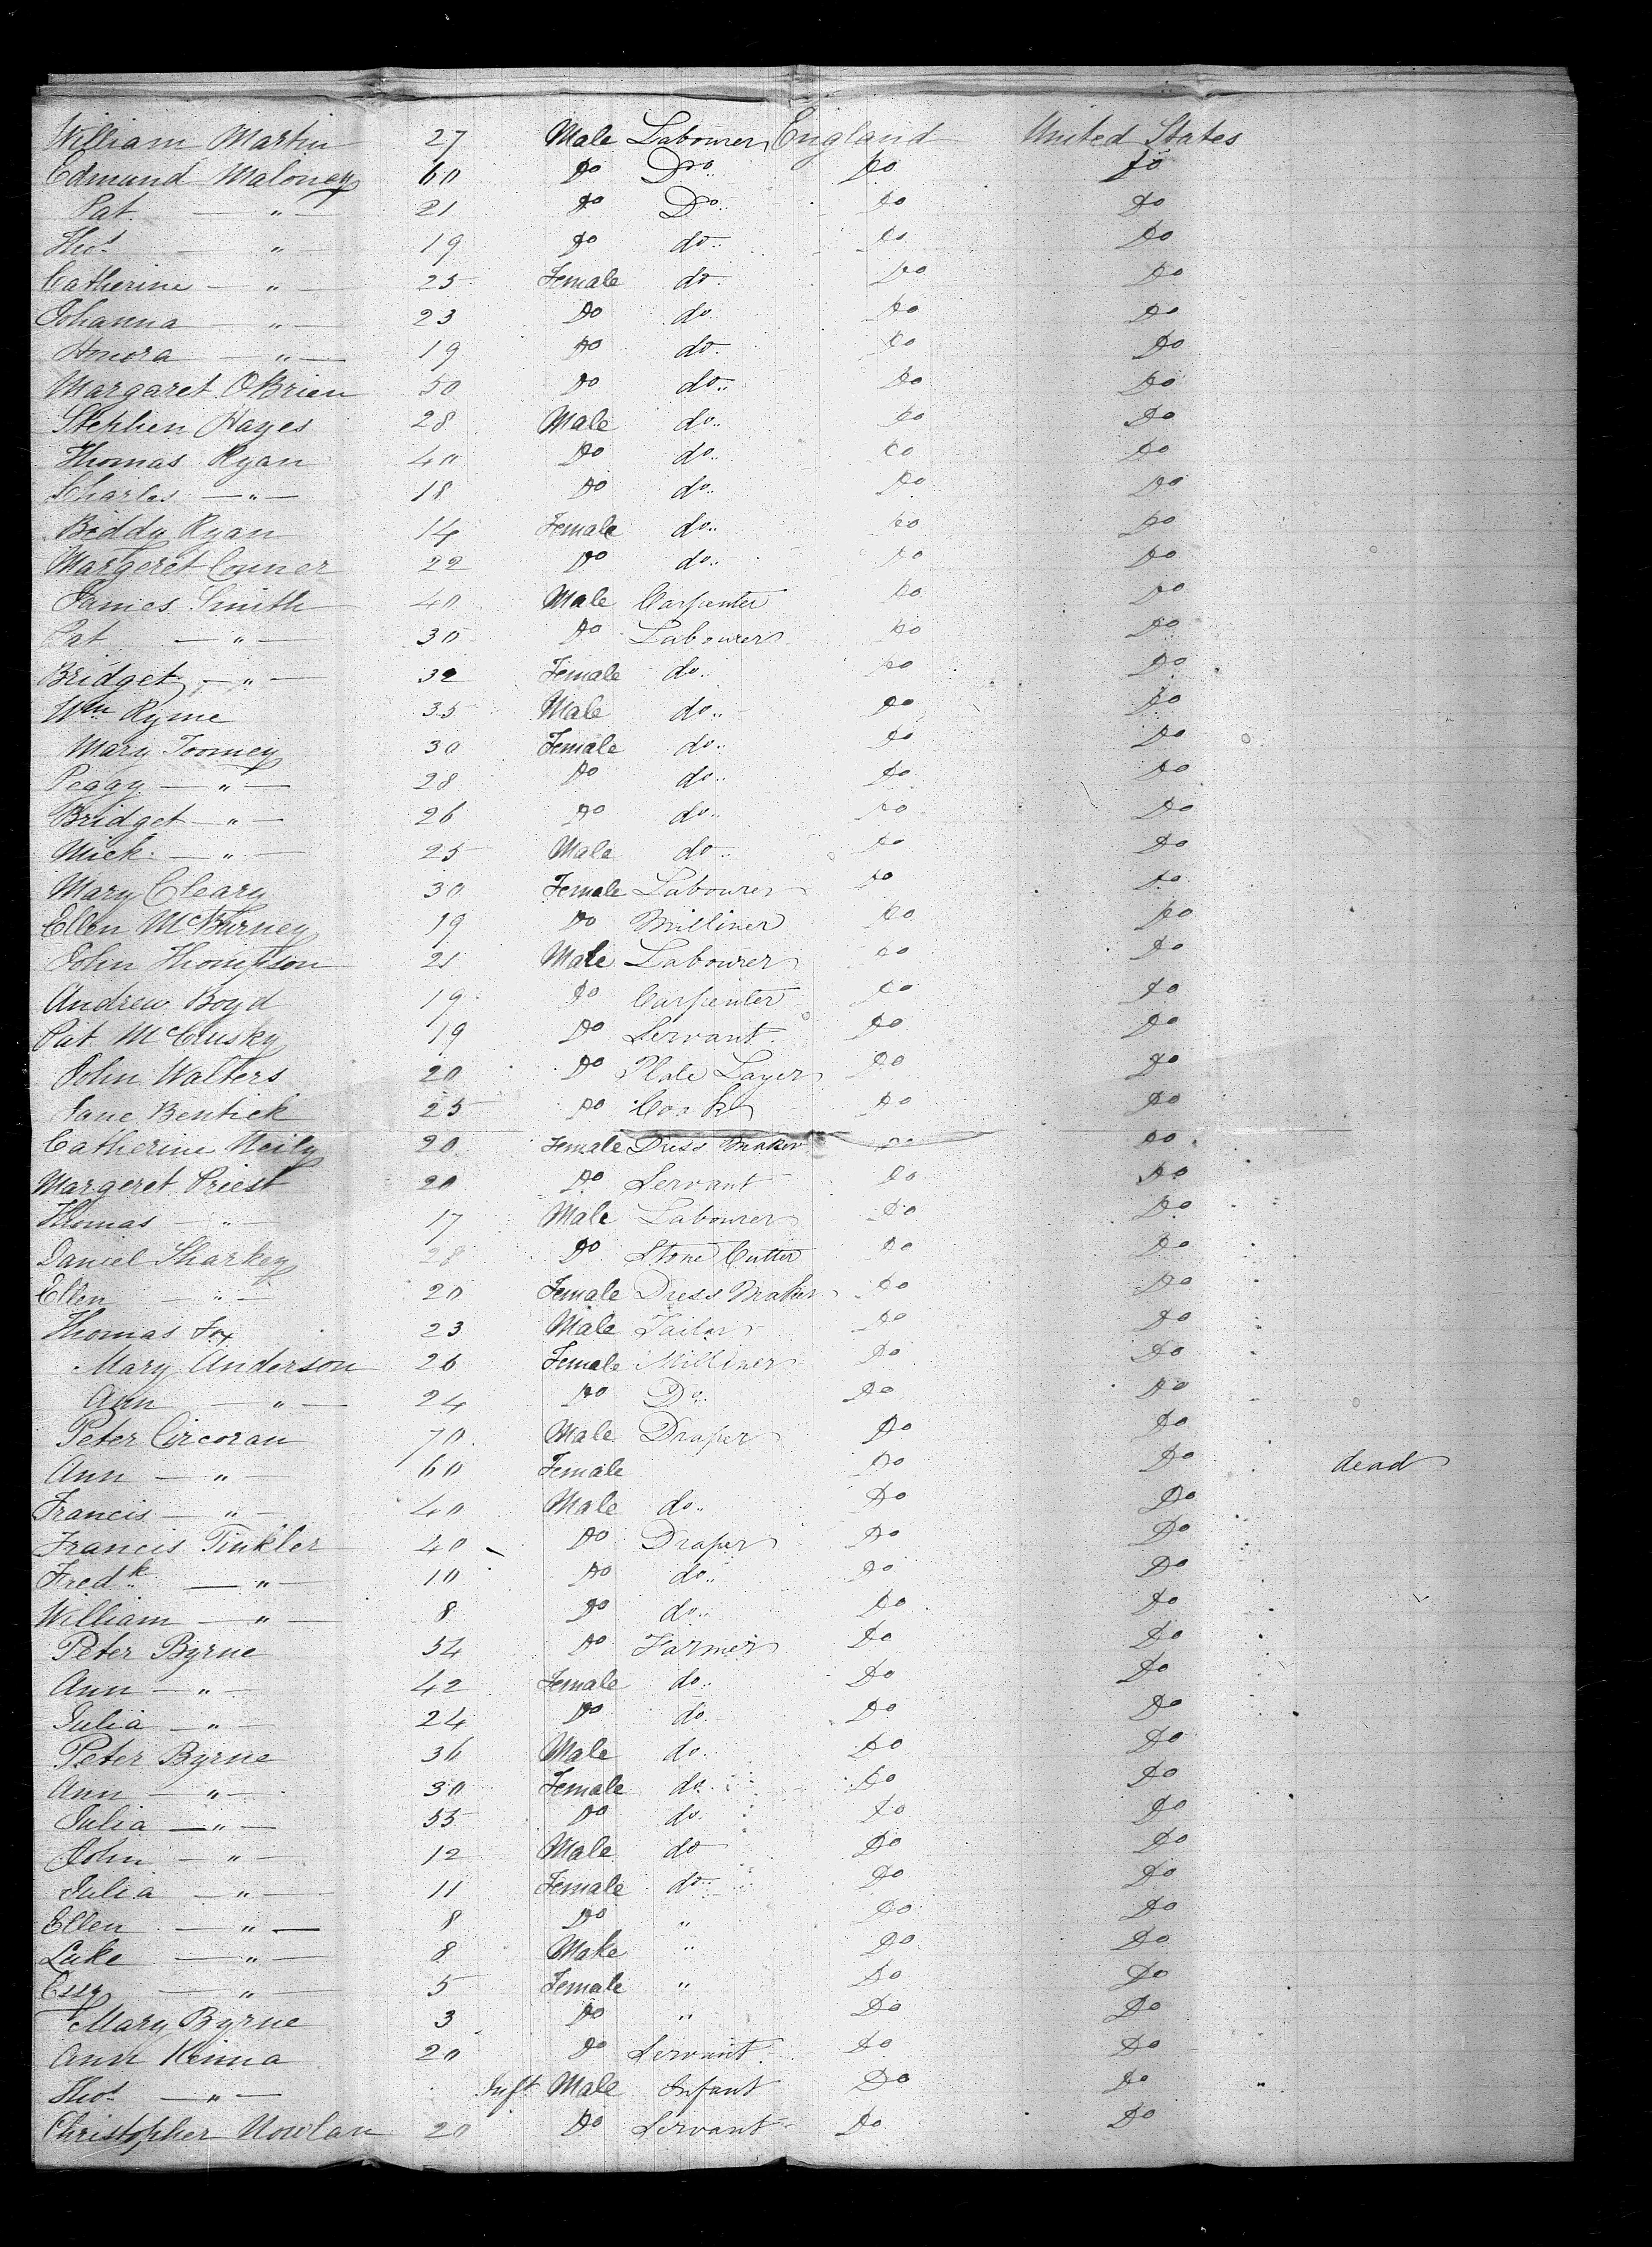 William Martin 27 Male Labourer England United States
Edmund Maloney 60 Do Do Do Do
Pat — " — 21 Do Do Do Do
Thos — " — 19 Do do Do Do
Catherine — " — 25 Female do Do Do
Johanna — " — 23 Do do Do Do
Honora — " — 19 Do do Do Do
Margaret OBrien 50 Do do Do Do
Stephen Hayes 28 Male do Do Do
Thomas Ryan 40 Do do Do Do
Charles — " — 18 Do do Do Do
Biddy Ryan 14 Female do Do Do
Margeret Conner 22 Do do Do Do
James Smith 40 Male Carpenter Do Do
Pat — " — 30 Do Labourer Do Do
Bridget — " — 32 Female do Do Do
Wm Ryme 35 Male do Do Do
Mary Toomey 30 Female do Do Do
Peggy — " — 28 Do do Do Do
Bridget — " — 26 Do do Do Do
Mick — " — 25 Male do Do Do
Mary Cleary 30 Female Labourer Do Do
Ellen McBurney 19 Do Milliner Do Do
John Thompson 21 Male Labourer Do Do
Andrew Boyd 19 Do Carpenter Do Do
Pat McClusky 19 Do Servant Do Do
John Walters 20 Do Plate Layer Do Do
Jane Bentick 25 Do Cook Do Do
Catherine Neily 20 Female Dress Maker Do Do
Margeret Priest 20 Do Servant Do Do
Thomas — " — 17 Male Labourer Do Do
Daniel Sharkey 28 Do Stone Cutter Do Do
Ellen — " — 20 Female Dress Maker Do Do
Thomas Fox 23 Male Tailor Do Do
Mary Anderson 26 Female Milliner Do Do
Ann — " — 24 Do Do Do Do
Peter Corcoran 70 Male Draper Do Do
Ann — " — 60 Female Do Do dead
Francis — " — 40 Male do Do Do
Francis Tinkler 40 Do Draper Do Do
Fredk — " — 10 Do do Do Do
William — " — 8 Do do Do Do
Peter Byrne 54 Do Farmer Do Do
Ann — " — 42 Female do Do Do
Julia — " — 24 Do do Do Do
Peter Byrne 36 Male do Do Do
Ann — " — 30 Female do Do Do
Julia — " — 55 Do do Do Do
John — " — 12 Male do Do Do
Julia — " — 11 Female do Do Do
Ellen — " — 8 Do " Do Do
Luke — " — 8 Make " Do Do
Essy — " — 5 Female " Do Do
Mary Byrne 3 Do " Do Do
Ann Kinna 20 Do Servant Do Do
Thos — " — Inft Male Infant Do Do
Christopher Nowlan 20 Do Servant Do Do